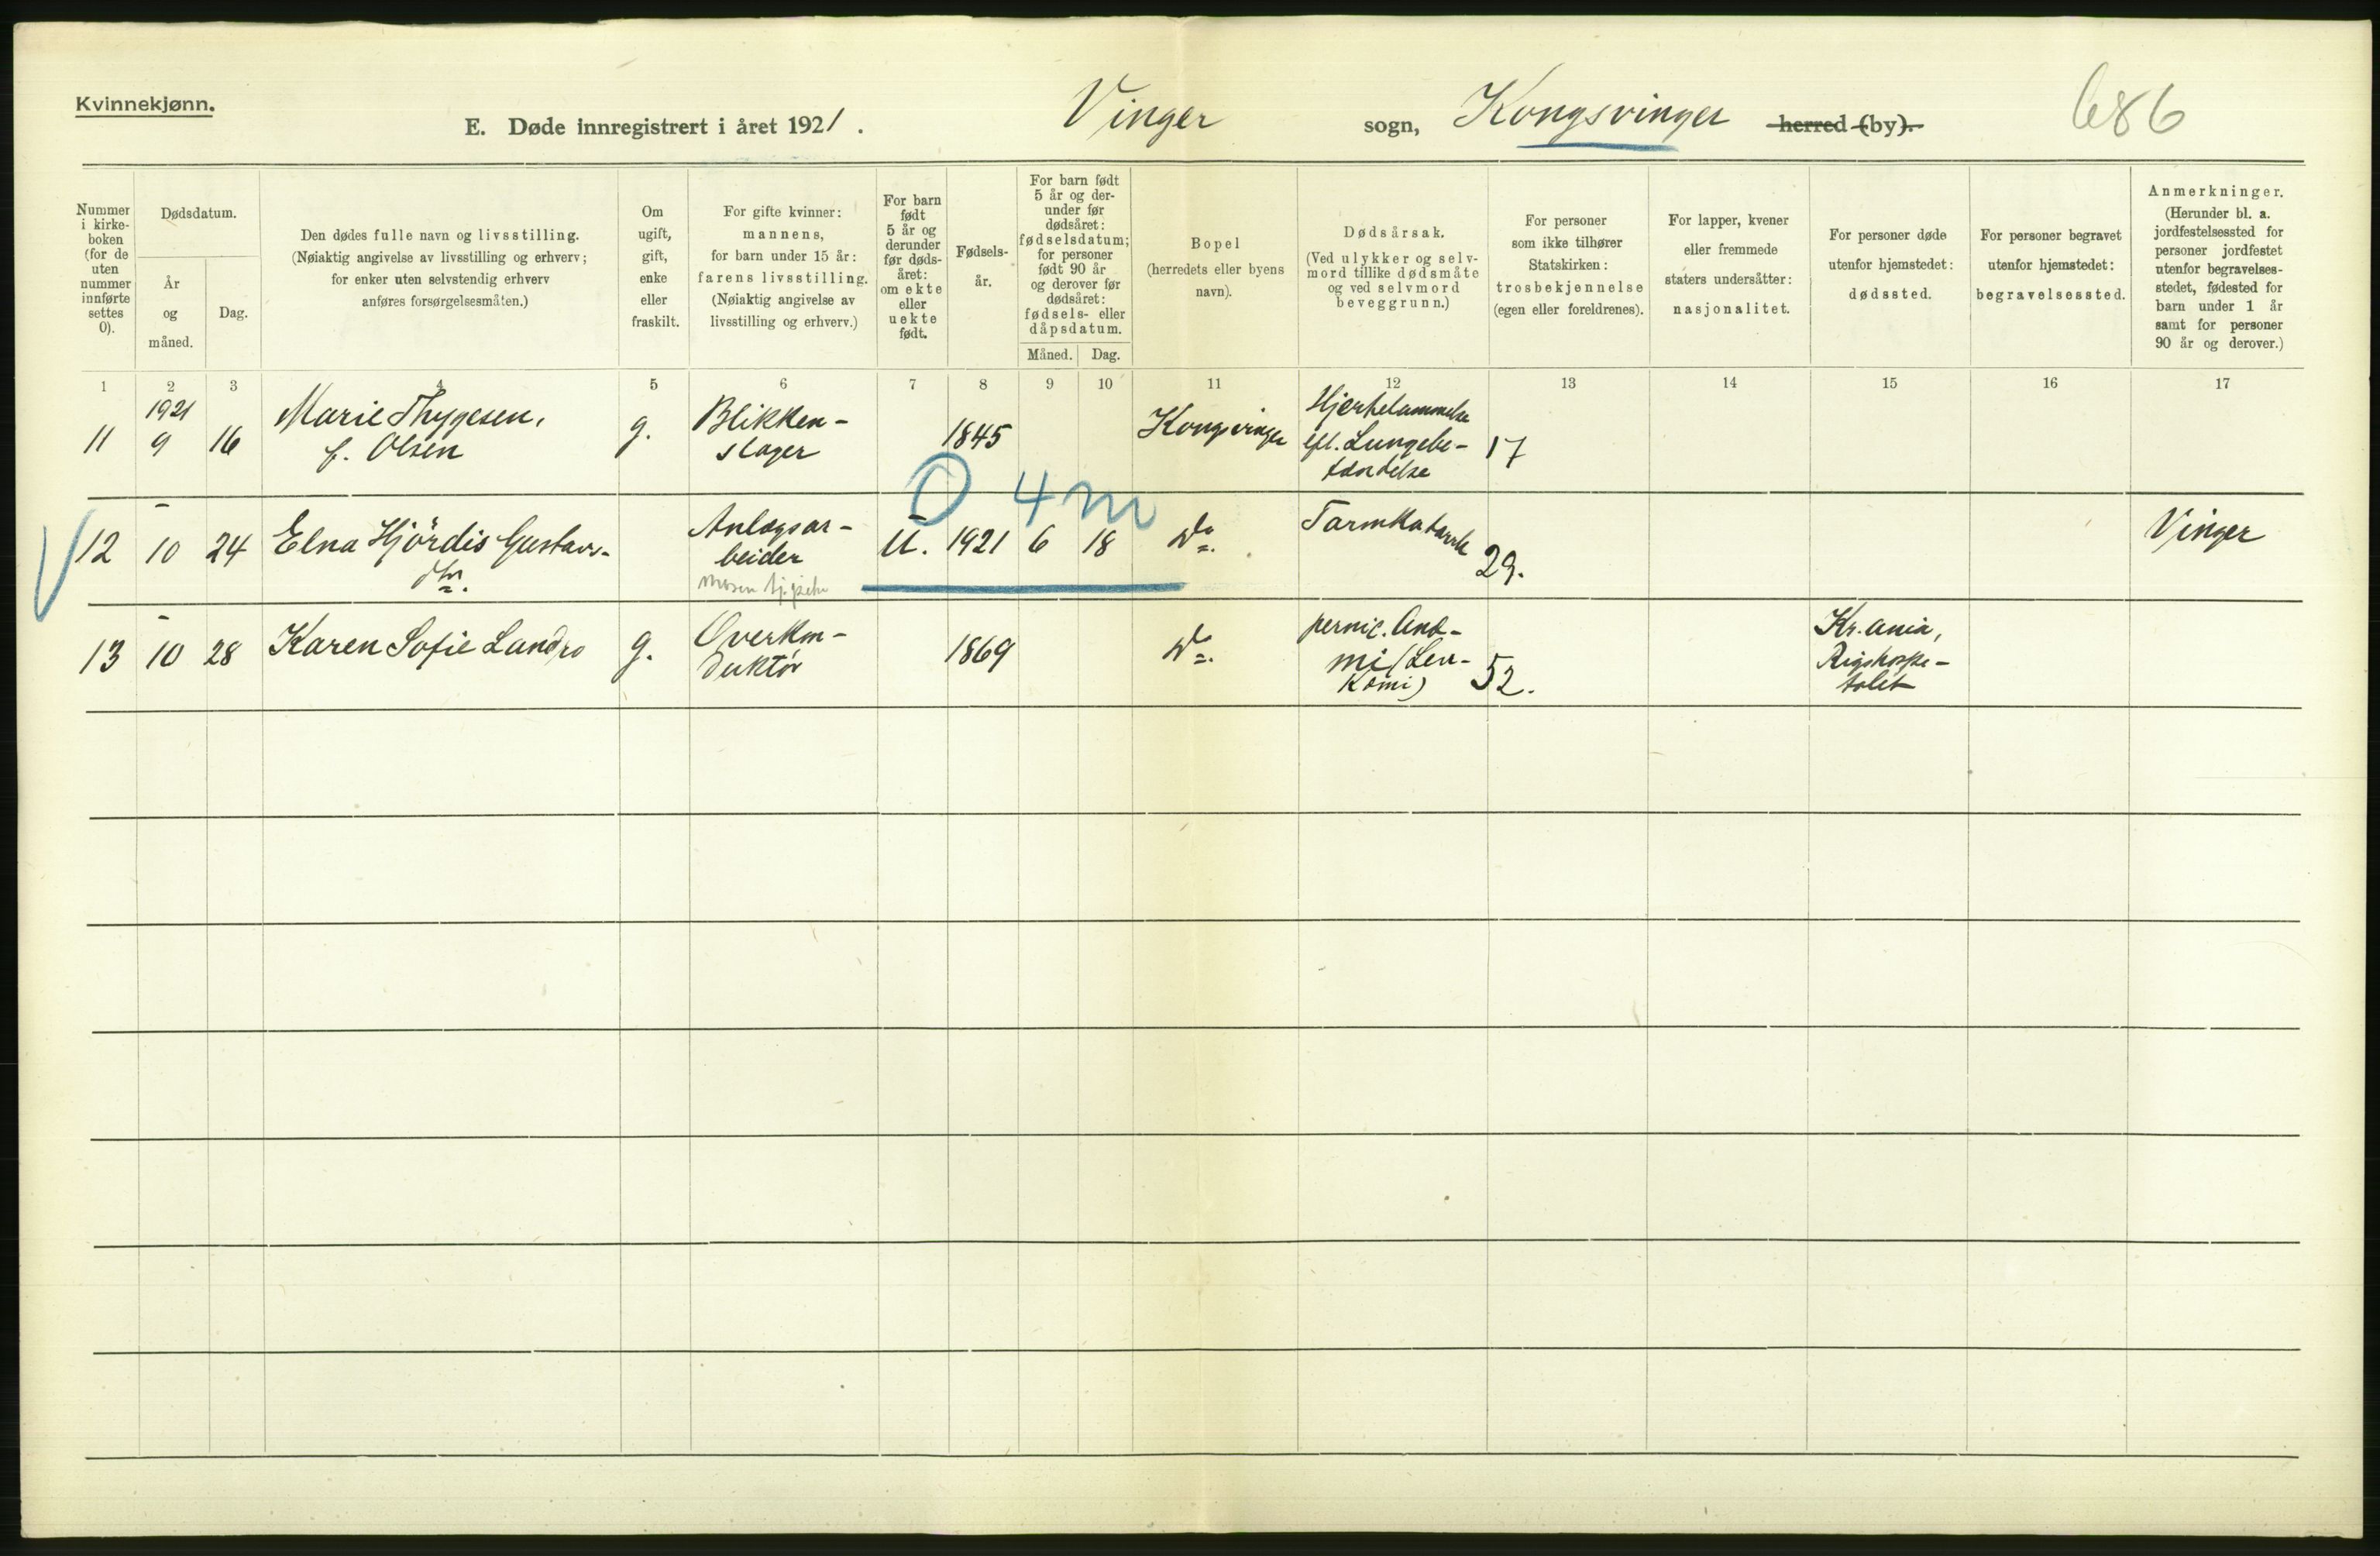 Kvinnekjønn.
E. Døde innregistrert i året 1921. Vinger sogn, Kongsvinger herred (by). 686
Nummer i kirke- boken (for de uten nummer innførte settes 0).
Dødsdatum.
År og måned.
Dag.
Den dødes fulle navn og livsstilling.
(Nøiaktig angivelse av livsstilling og erhverv;
for enker uten selvstendig erhverv
anføres forsørgelsesmåten.)
Om
ugift,
gift,
enke
eller
fraskilt.
For gifte kvinner:
mannens,
for barn under 15 år:
farens livsstilling.
(Nøiaktig angivelse av
livsstilling og erhverv.)
For barn
født
5 år og
derunder
før døds-
året:
om ekte
eller
uekte
født.
Fødsels-
år.
For barn født
5 år og der-
under før
dødsåret:
fødselsdatum;
for personer
født 90 år
og derover før
dødsåret:
fødsels- eller
dåpsdatum.
Måned. Dag.
Bopel
(herredets eller byens
navn).
Dødsårsak.
(Ved ulykker og selv-
mord tillike dødsmåte
og ved selvmord
beveggrunn.)
For personer
som ikke tilhører
Statskirken:
trosbekjennelse
(egen eller foreldrenes).
For lapper, kvener
eller fremmede
staters undersåtter:
nasjonalitet.
For personer døde
utenfor hjemstedet:
dødssted.
For personer begravet
utenfor hjemstedet:
begravelsessted.
Anmerkninger.
(Herunder bl. a.
jordfestelsessted for
personer jordfestet
utenfor begravelses-
stedet, fødested for
barn under 1 år
samt for personer
90 år og derover.)
1 2 3 4 5 6 7 8 9 10 11 12 13 14 15 16 17
1921
11 9 16
Marie Thygesen,
f. Olsen
g.
Blikken-
slager
1845
Kongsvinger
Hjertelammelse
eft. Lungebe-
tændelse
17
0 4 m
12 10 24
Elna Hjördis Gustavs-
dtr.
Anlægsar-
beider
U. 1921 6 18
Do.
Tarmkatarrh
29.
Vinger
13 10 28
Karen Sofie Landro
g.
Overkon-
duktör
1869
Do.
pernic. Anæ-
mi (Leu-
kæmi)
52.
Kr.ania,
Rigshospi-
talet